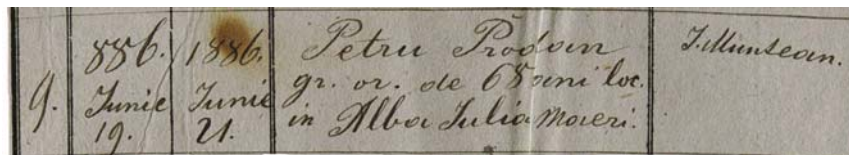 9.
886.
Junie
19.
1886.
Junie
21.
Petru Prodan
gr. or. de 68 ani loc.
in Alba Julia Maeri.
J. Muntean.